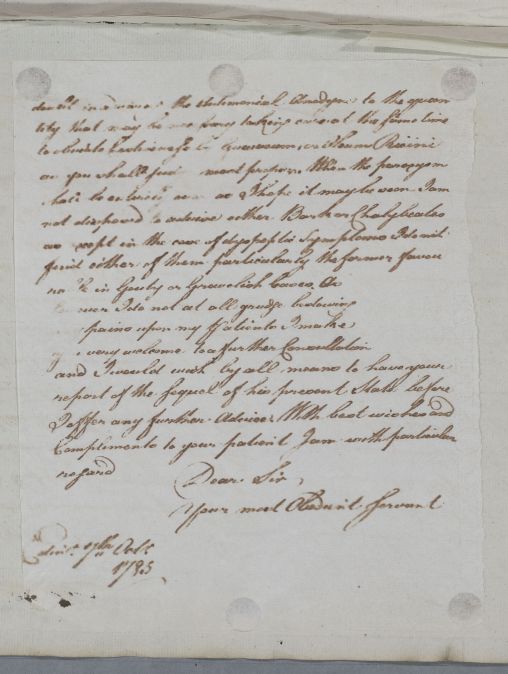 the Antimonial Anodyne to the quan
tity that may be taking care at the same time
to obviate Costiveness by or Oleum Ricini
as you shall find most proper. When the paroxysm
is as I hope it may be soon I am
not disposed to advise either Bark or Chalybeates
except in the case of dyspeptic Symptoms I do not
find either of them particularly the former favou
rable in Gouty or Gravelish cases. As
I do not at all grudge bestowing
pains upon my Patients I make
you very welcome to a further Consultation
and I would wish by all means to have your
report of the sequel of his present State before
I offer any further Advice. With best wishes and
Compliments to your patient I am with particular
regard
Dear Sir
Your most Obedient Servant
Edinr. 7th Octr.
1785